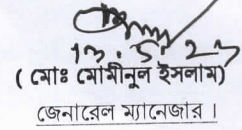 13.5.23
( মোঃ মোমীনুল ইসলাম)
জেনারেল ম্যানেজার ।